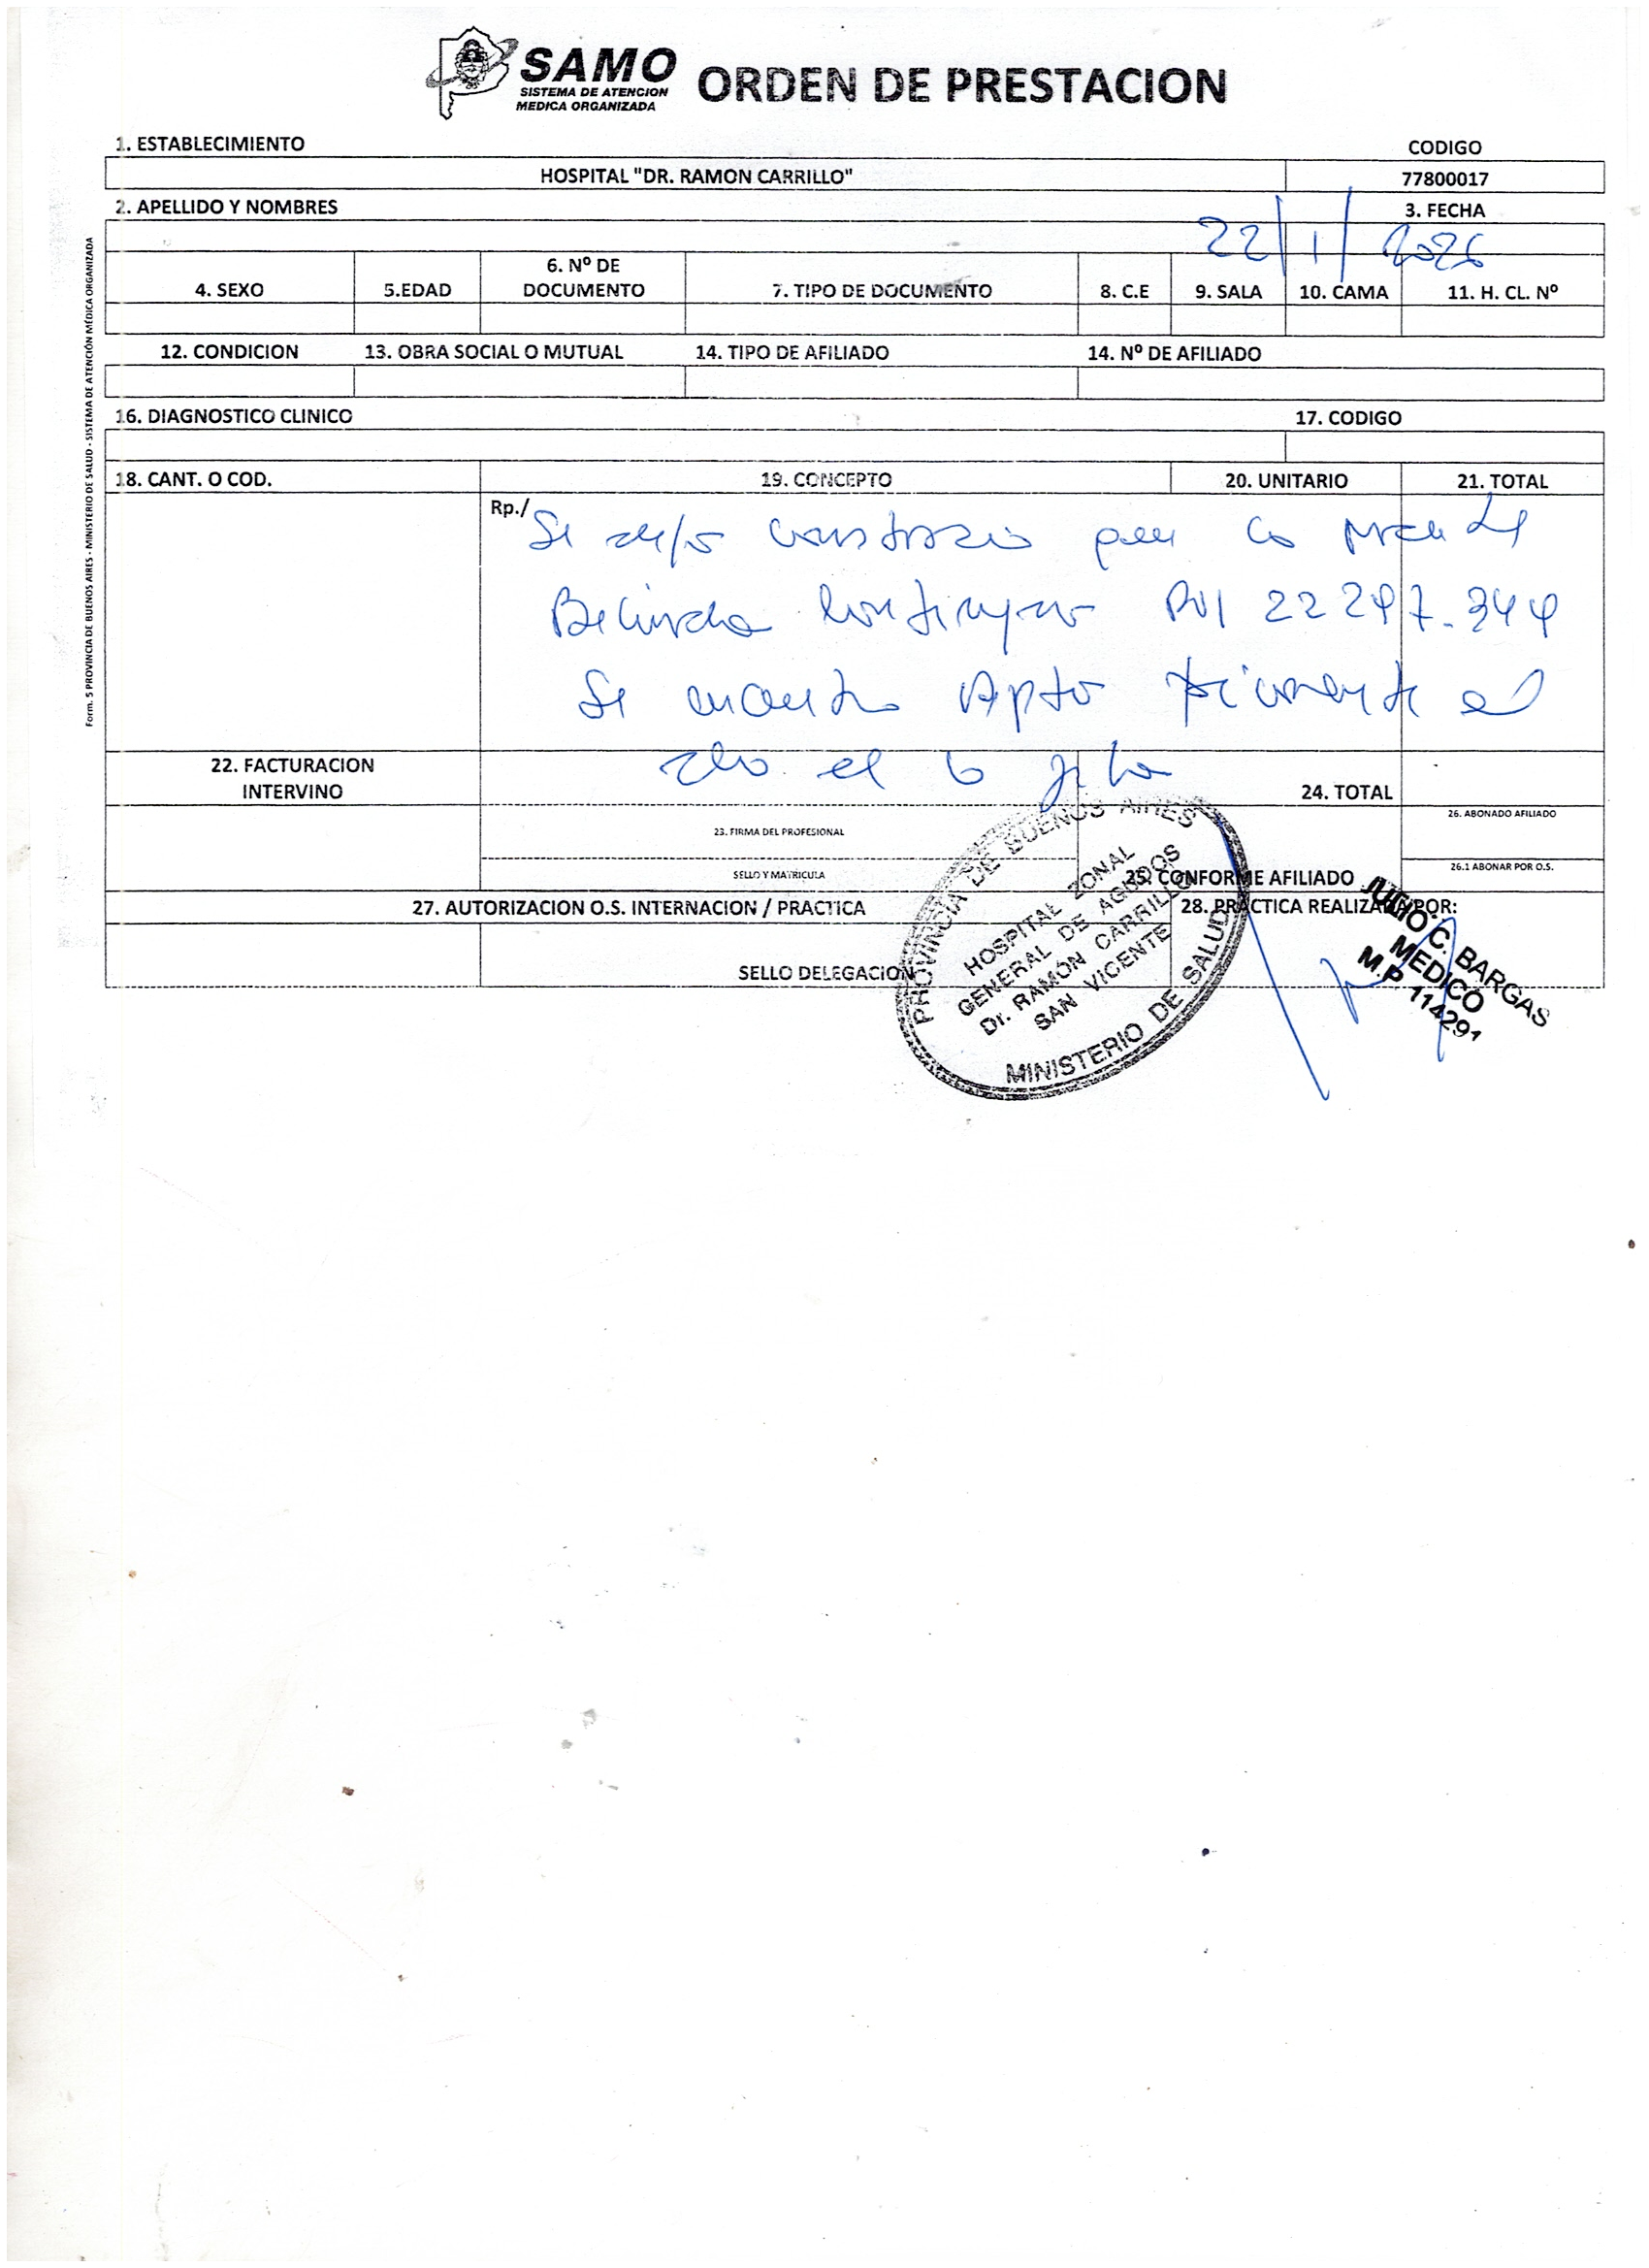 SAMO
SISTEMA DE ATENCION
MEDICA ORGANIZADA
ORDEN DE PRESTACION
1. ESTABLECIMIENTO CODIGO
HOSPITAL "DR. RAMON CARRILLO" 77800017
2. APELLIDO Y NOMBRES 3. FECHA
22/1/2026
4. SEXO 5.EDAD 6. Nº DE DOCUMENTO 7. TIPO DE DOCUMENTO 8. C.E 9. SALA 10. CAMA 11. H. CL. Nº
12. CONDICION 13. OBRA SOCIAL O MUTUAL 14. TIPO DE AFILIADO 14. Nº DE AFILIADO
16. DIAGNOSTICO CLINICO 17. CODIGO
18. CANT. O COD. 19. CONCEPTO 20. UNITARIO 21. TOTAL
Rp./ Se deja constancia que la
Belinda DNI 22 297.344
Se encuentra Apto
22. FACTURACION
INTERVINO
24. TOTAL
23. FIRMA DEL PROFESIONAL
26. ABONADO AFILIADO
SELLO Y MATRICULA
25. CONFORME AFILIADO
26.1 ABONAR POR O.S.
27. AUTORIZACION O.S. INTERNACION / PRACTICA
28. PRACTICA REALIZADA POR:
SELLO DELEGACION
PROVINCIA DE BUENOS AIRES
HOSPITAL ZONAL
GENERAL DE AGUDOS
Dr. RAMÓN CARRILLO
SAN VICENTE
MINISTERIO DE SALUD
JULIO C. BARGAS
MEDICO
M.P. 114291
Form. 5 PROVINCIA DE BUENOS AIRES - MINISTERIO DE SALUD - SISTEMA DE ATENCIÓN MÉDICA ORGANIZADA